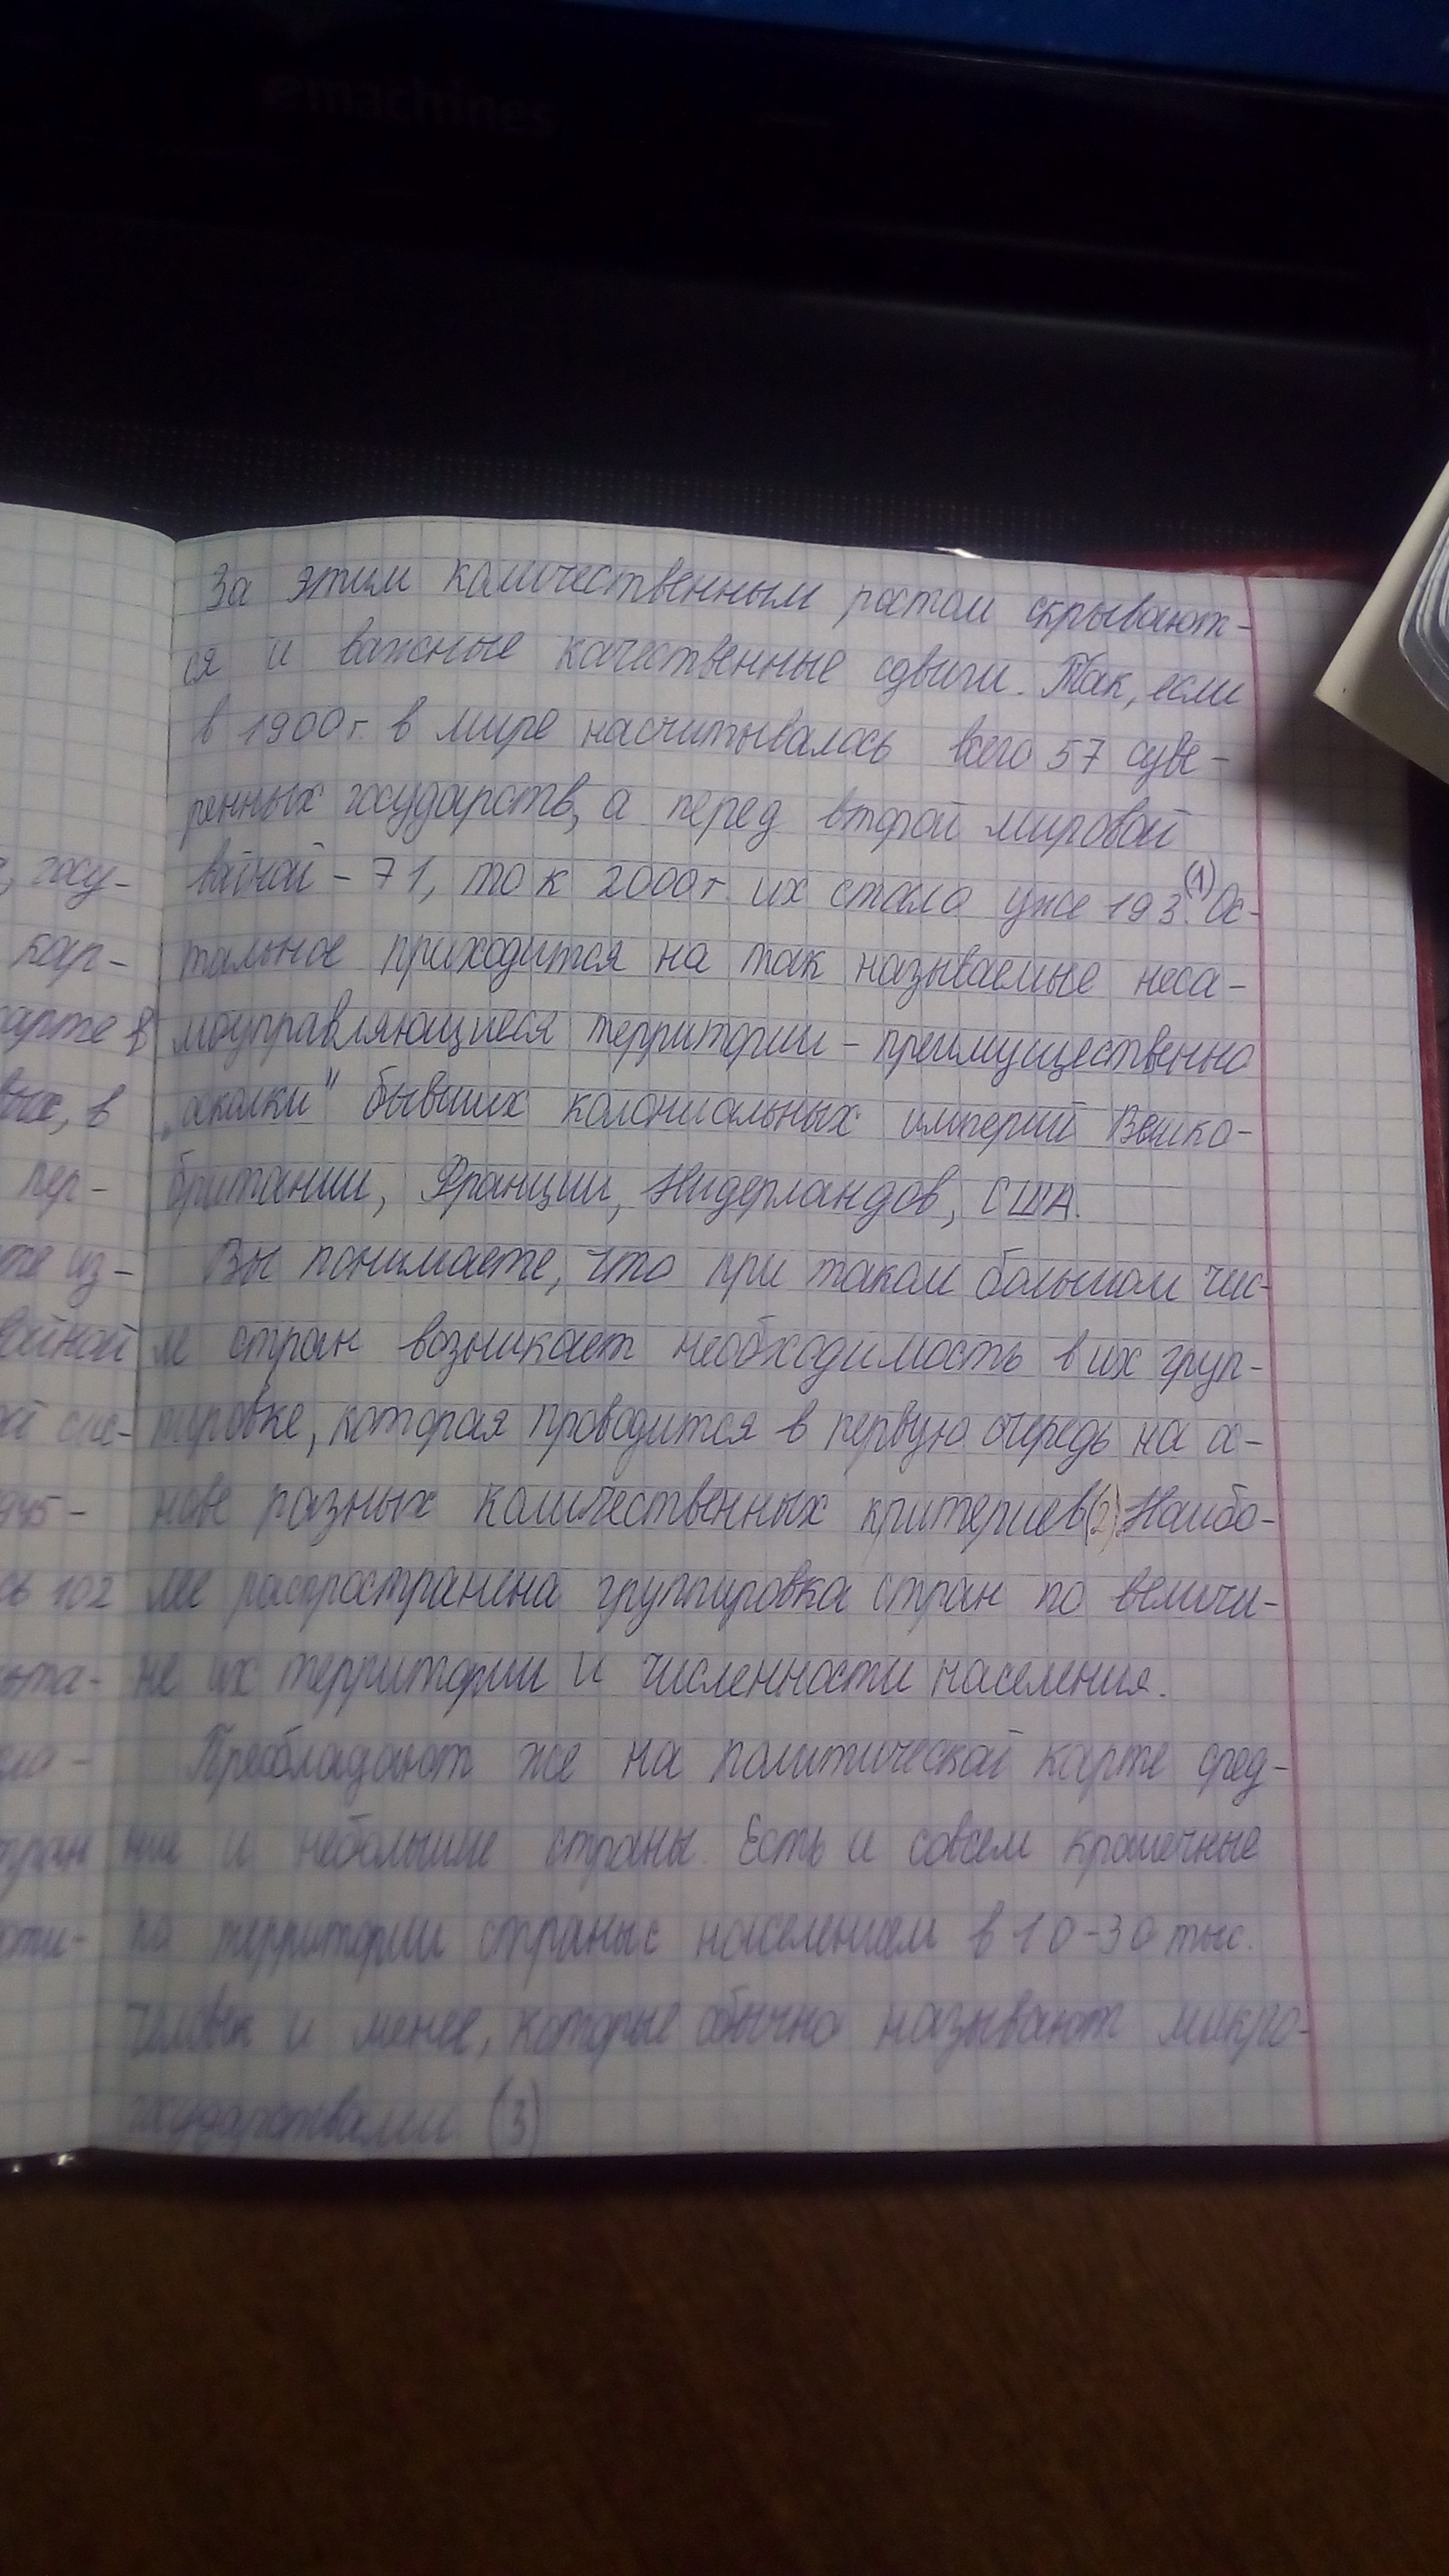 emachines
За этим количественным ростом скрывают-
ся и важные качественные сдвиги. Так, если
в 1900 г. в мире насчитывалось всего 57 суве-
ренных государств, а перед второй мировой
войной - 71, то к 2000 г. их стало уже 193.(1) Ос-
тальное приходится на так называемые неса-
моуправляющиеся территории - преимущественно
„осколки" бывших колониальных империй Велико-
британии, Франции, Нидерландов, США.
Вы понимаете, что при таком большом чис-
ле стран возникает необходимость в их груп-
пировке, которая проводится в первую очередь на ос-
нове разных количественных критериев(2). Наибо-
лее распространена группировка стран по величи-
не их территории и численности населения.
Преобладают же на политической карте сред-
ние и небольшие страны. Есть и совсем крошечные
по территории страны с населением в 10-30 тыс.
человек и менее, которые обычно называют микро-
государствами (3)
, госу-
кар-
карте в
вых, в
пер-
из-
войной
ой сис-
945 -
сь 102
ьта-
стран